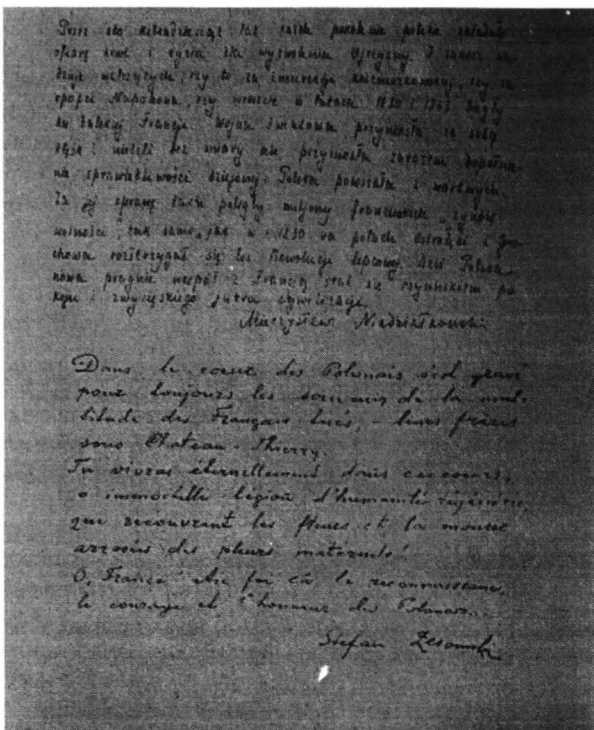 Przez sto kilkadziesiąt lat pokolenia polskie składały
ofiarę krwi i życia dla wyzwolenia Ojczyzny. I zawsze
czy to za insurekcji kościuszkowskiej, czy za
epopei Napoleona, czy wreszcie w latach 1830 i 1863
Francji. Wojna światowa przyniosła za sobą
bez miary ale przyniosła zarazem
nie sprawiedliwości dziejowej. Polska powstała z martwych.
Za jej sprawę także poległy miljony francuskich "synów
wolności", tak samo, jak w r. 1830 na polach Ostrołęki i Gro-
chowa rozstrzygał się los Rewolucji lipcowej. Dziś Polska
nowa pragnie wespół z Francją stać się czynnikiem po
koju i zwycięskiego jutra cywilizacji.
Mieczysław Niedziałkowski
Dans le coeur des Polonais s'est gravé
pour toujours les souvenirs de la mul-
titude des Français tués, - leurs frères
sous Chateau-Thierry.
Tu vivras éternellement dans ces coeurs,
o immortelle légion d'humanité régénérée,
que recouvrent les fleurs et la mousse
arrosées des pleurs maternels!
O, France! Aie foi en la reconnaissance,
le courage et l'honneur des Polonais.
Stefan Żeromski